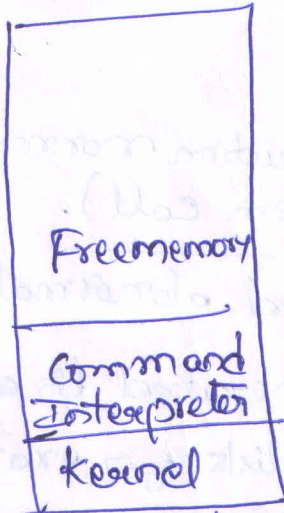 Freememory
Command
Interpreter
Kernel